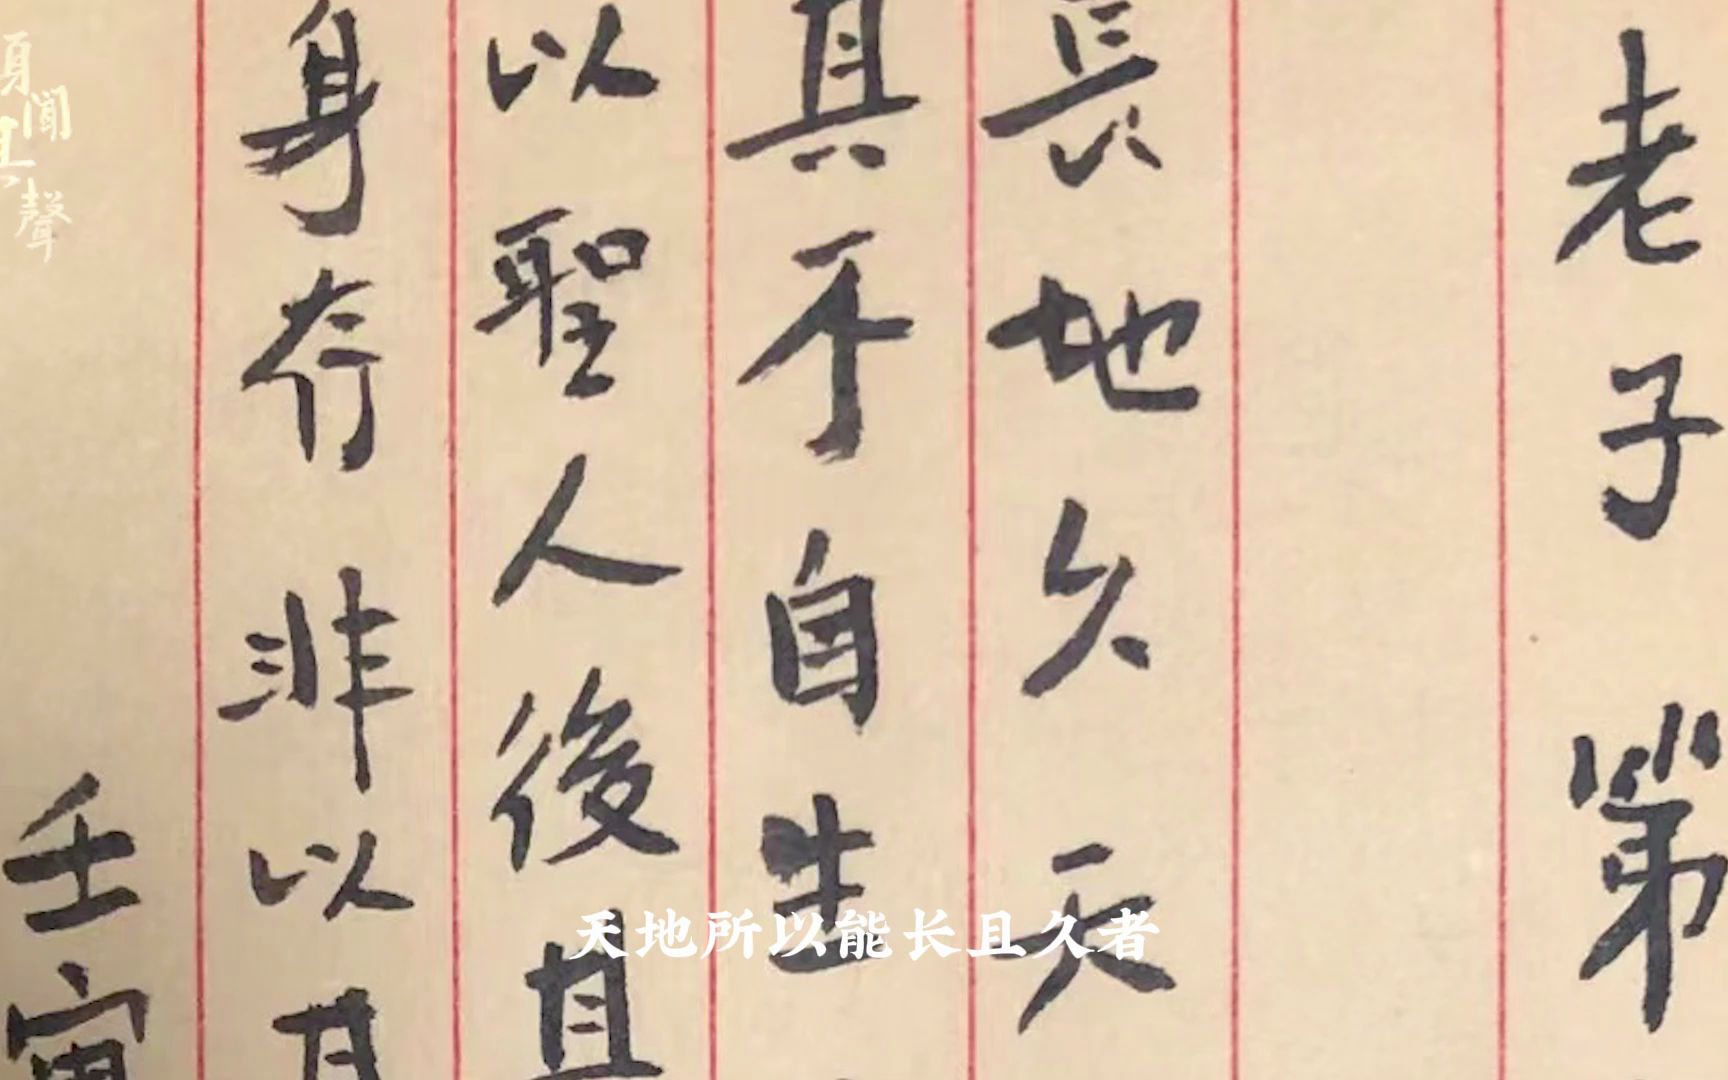 老子第
長地久天
其不自生
以聖人後其
身存非以其
壬寅
天地所以能长且久者
聞其聲